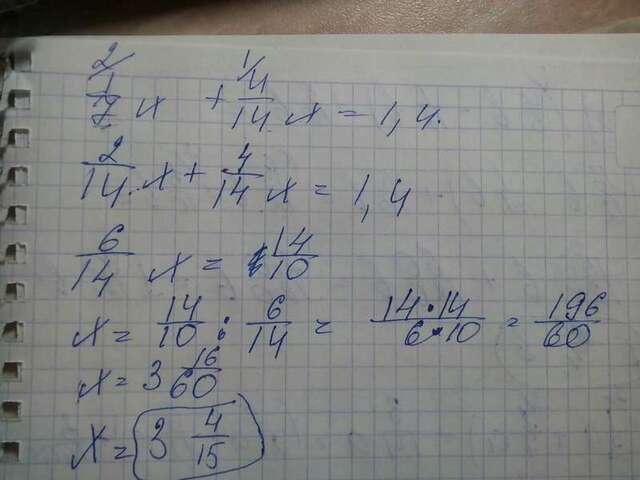 2/ 1/
1/7 x + 4/14 x = 1,4.
2/14 x + 4/14 x = 1,4
6/14 x = 14/10
x = 14/10 : 6/14 = 14·14/6·10 = 196/60
x = 3 16/60
x = 3 4/15